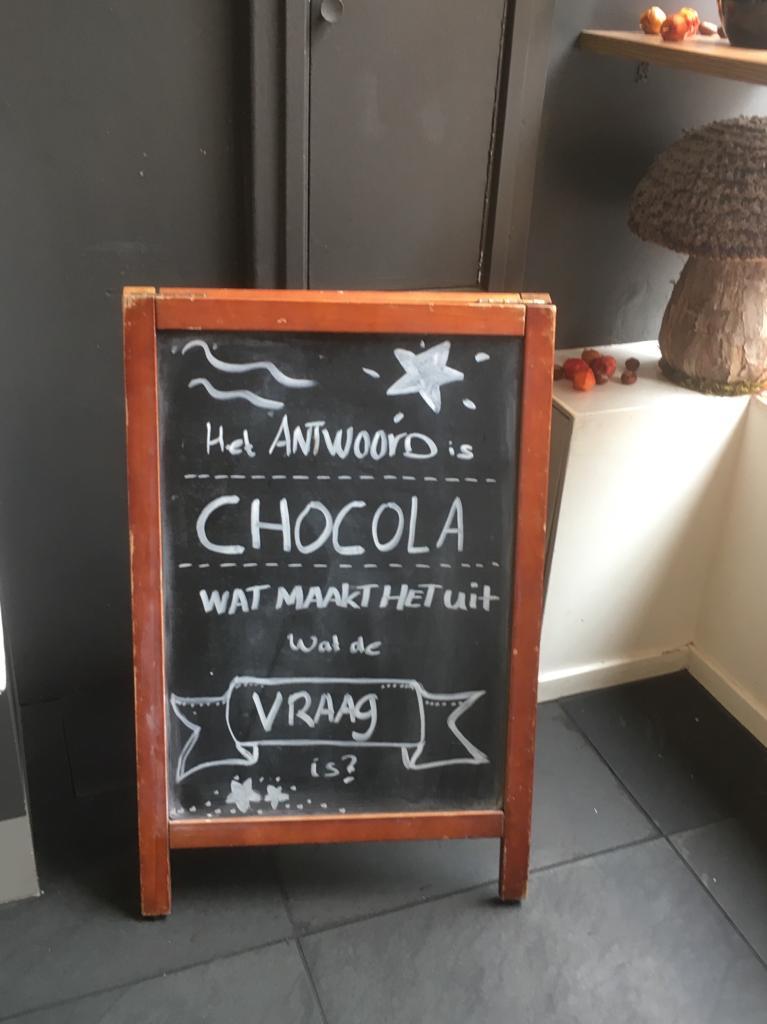 Het ANTWOORD is
CHOCOLA
WAT MAAKT HET uit
Wat de
VRAAG
is?